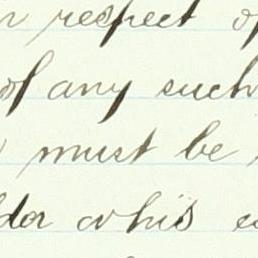 respect
of any such
must be
or his